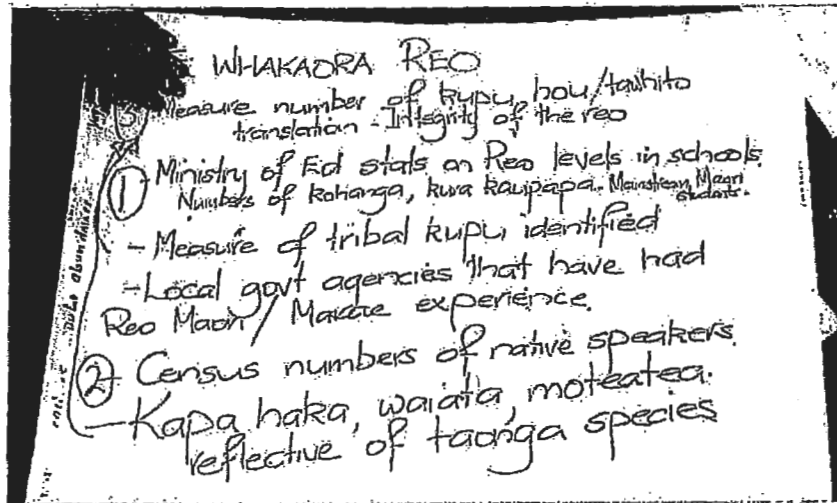 WHAKAORA REO
③ Measure number of kupu hou/tawhito
translation - Integrity of the reo
① - Ministry of Ed stats on Reo levels in schools.
Numbers of kohanga, kura kaupapa. Mainstream Maori
students.
- Measure of tribal kupu identified
- Local govt agencies that have had
Reo Maori / Marae experience.
② - Census numbers of native speakers.
- Kapa haka, waiata, moteatea.
reflective of taonga species